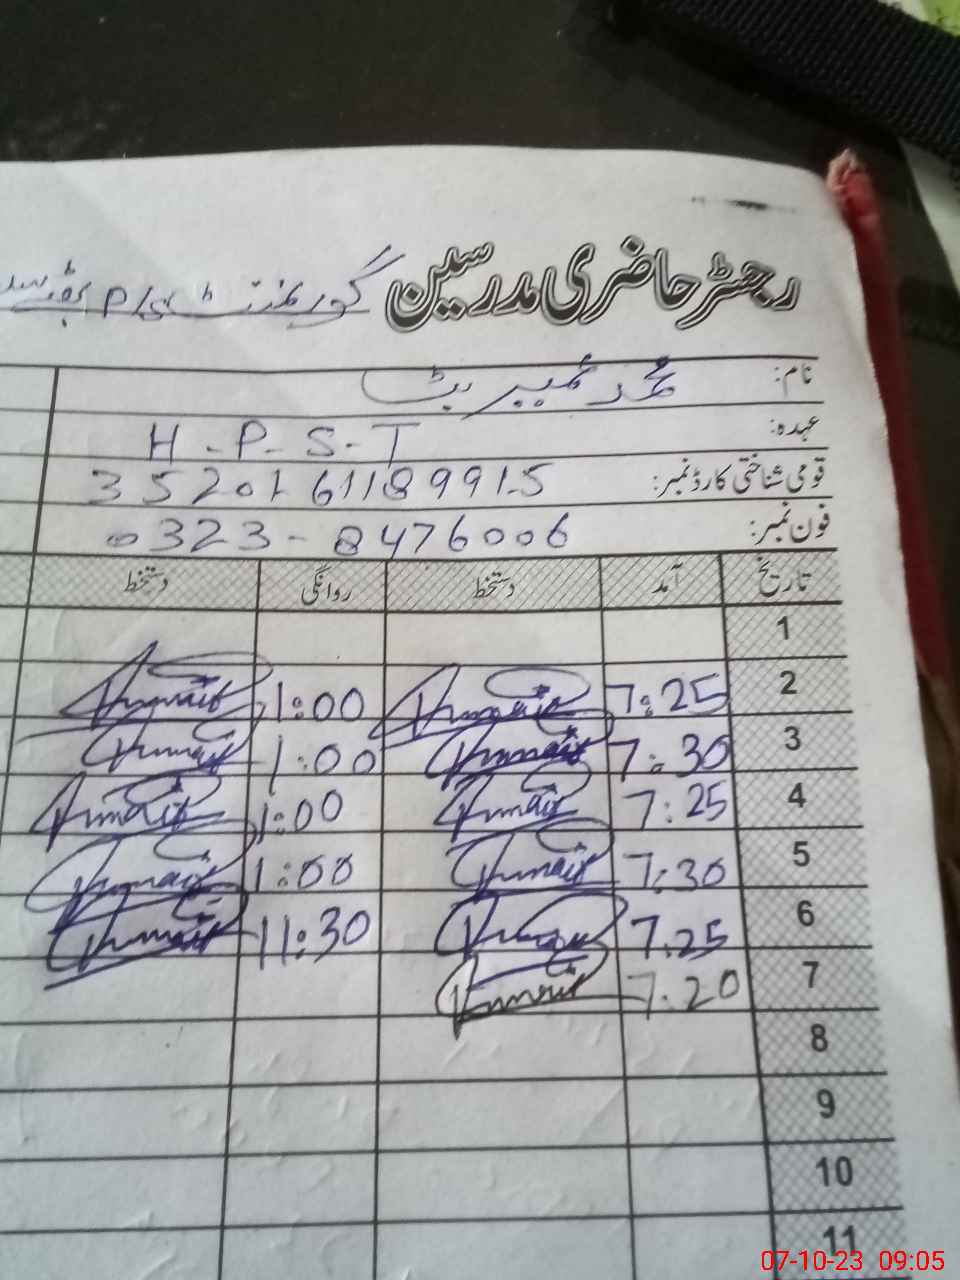 رجسٹر حاضری مدرسین گورنمنٹ P/S
نام: محمد عمیر بٹ
عہدہ: H-P-S-T
قومی شناختی کارڈ نمبر: 3520161189915
فون نمبر: 0323-8476006
تاریخ آمد دستخط روانگی دستخط
1
2 7:25 1:00
3 7:30 1:00
4 7:25 1:00
5 7:30 1:00
6 7.25 11:30
7 7.20
8
9
10
11
07-10-23 09:05